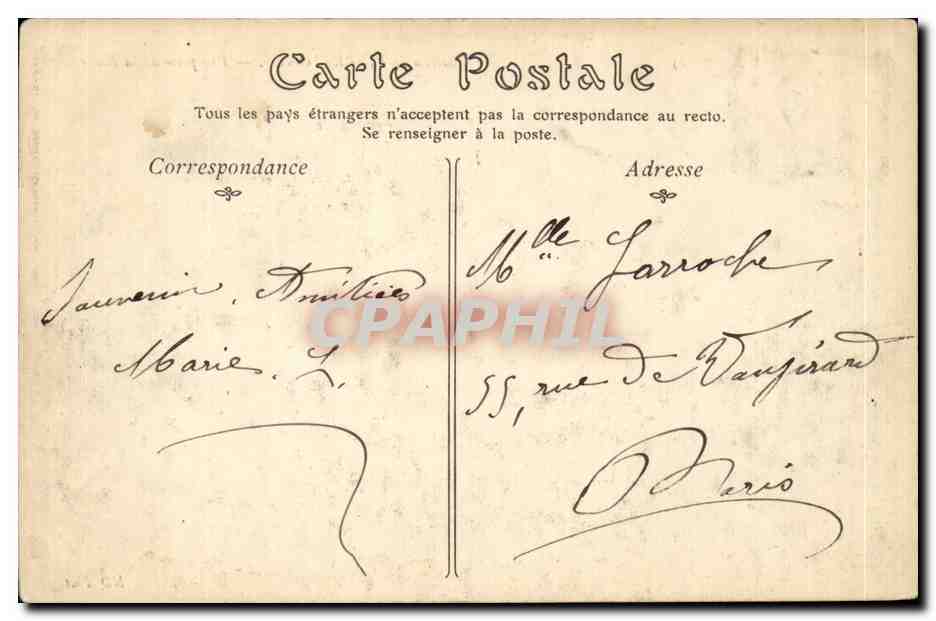 Carte Postale
Tous les pays étrangers n'acceptent pas la correspondance au recto.
Se renseigner à la poste.
Correspondance
Souvenir. Amitiées
Marie. L.
Adresse
Mlle Jarroche
55, rue de Vaugirard
Paris
CPAPHIL